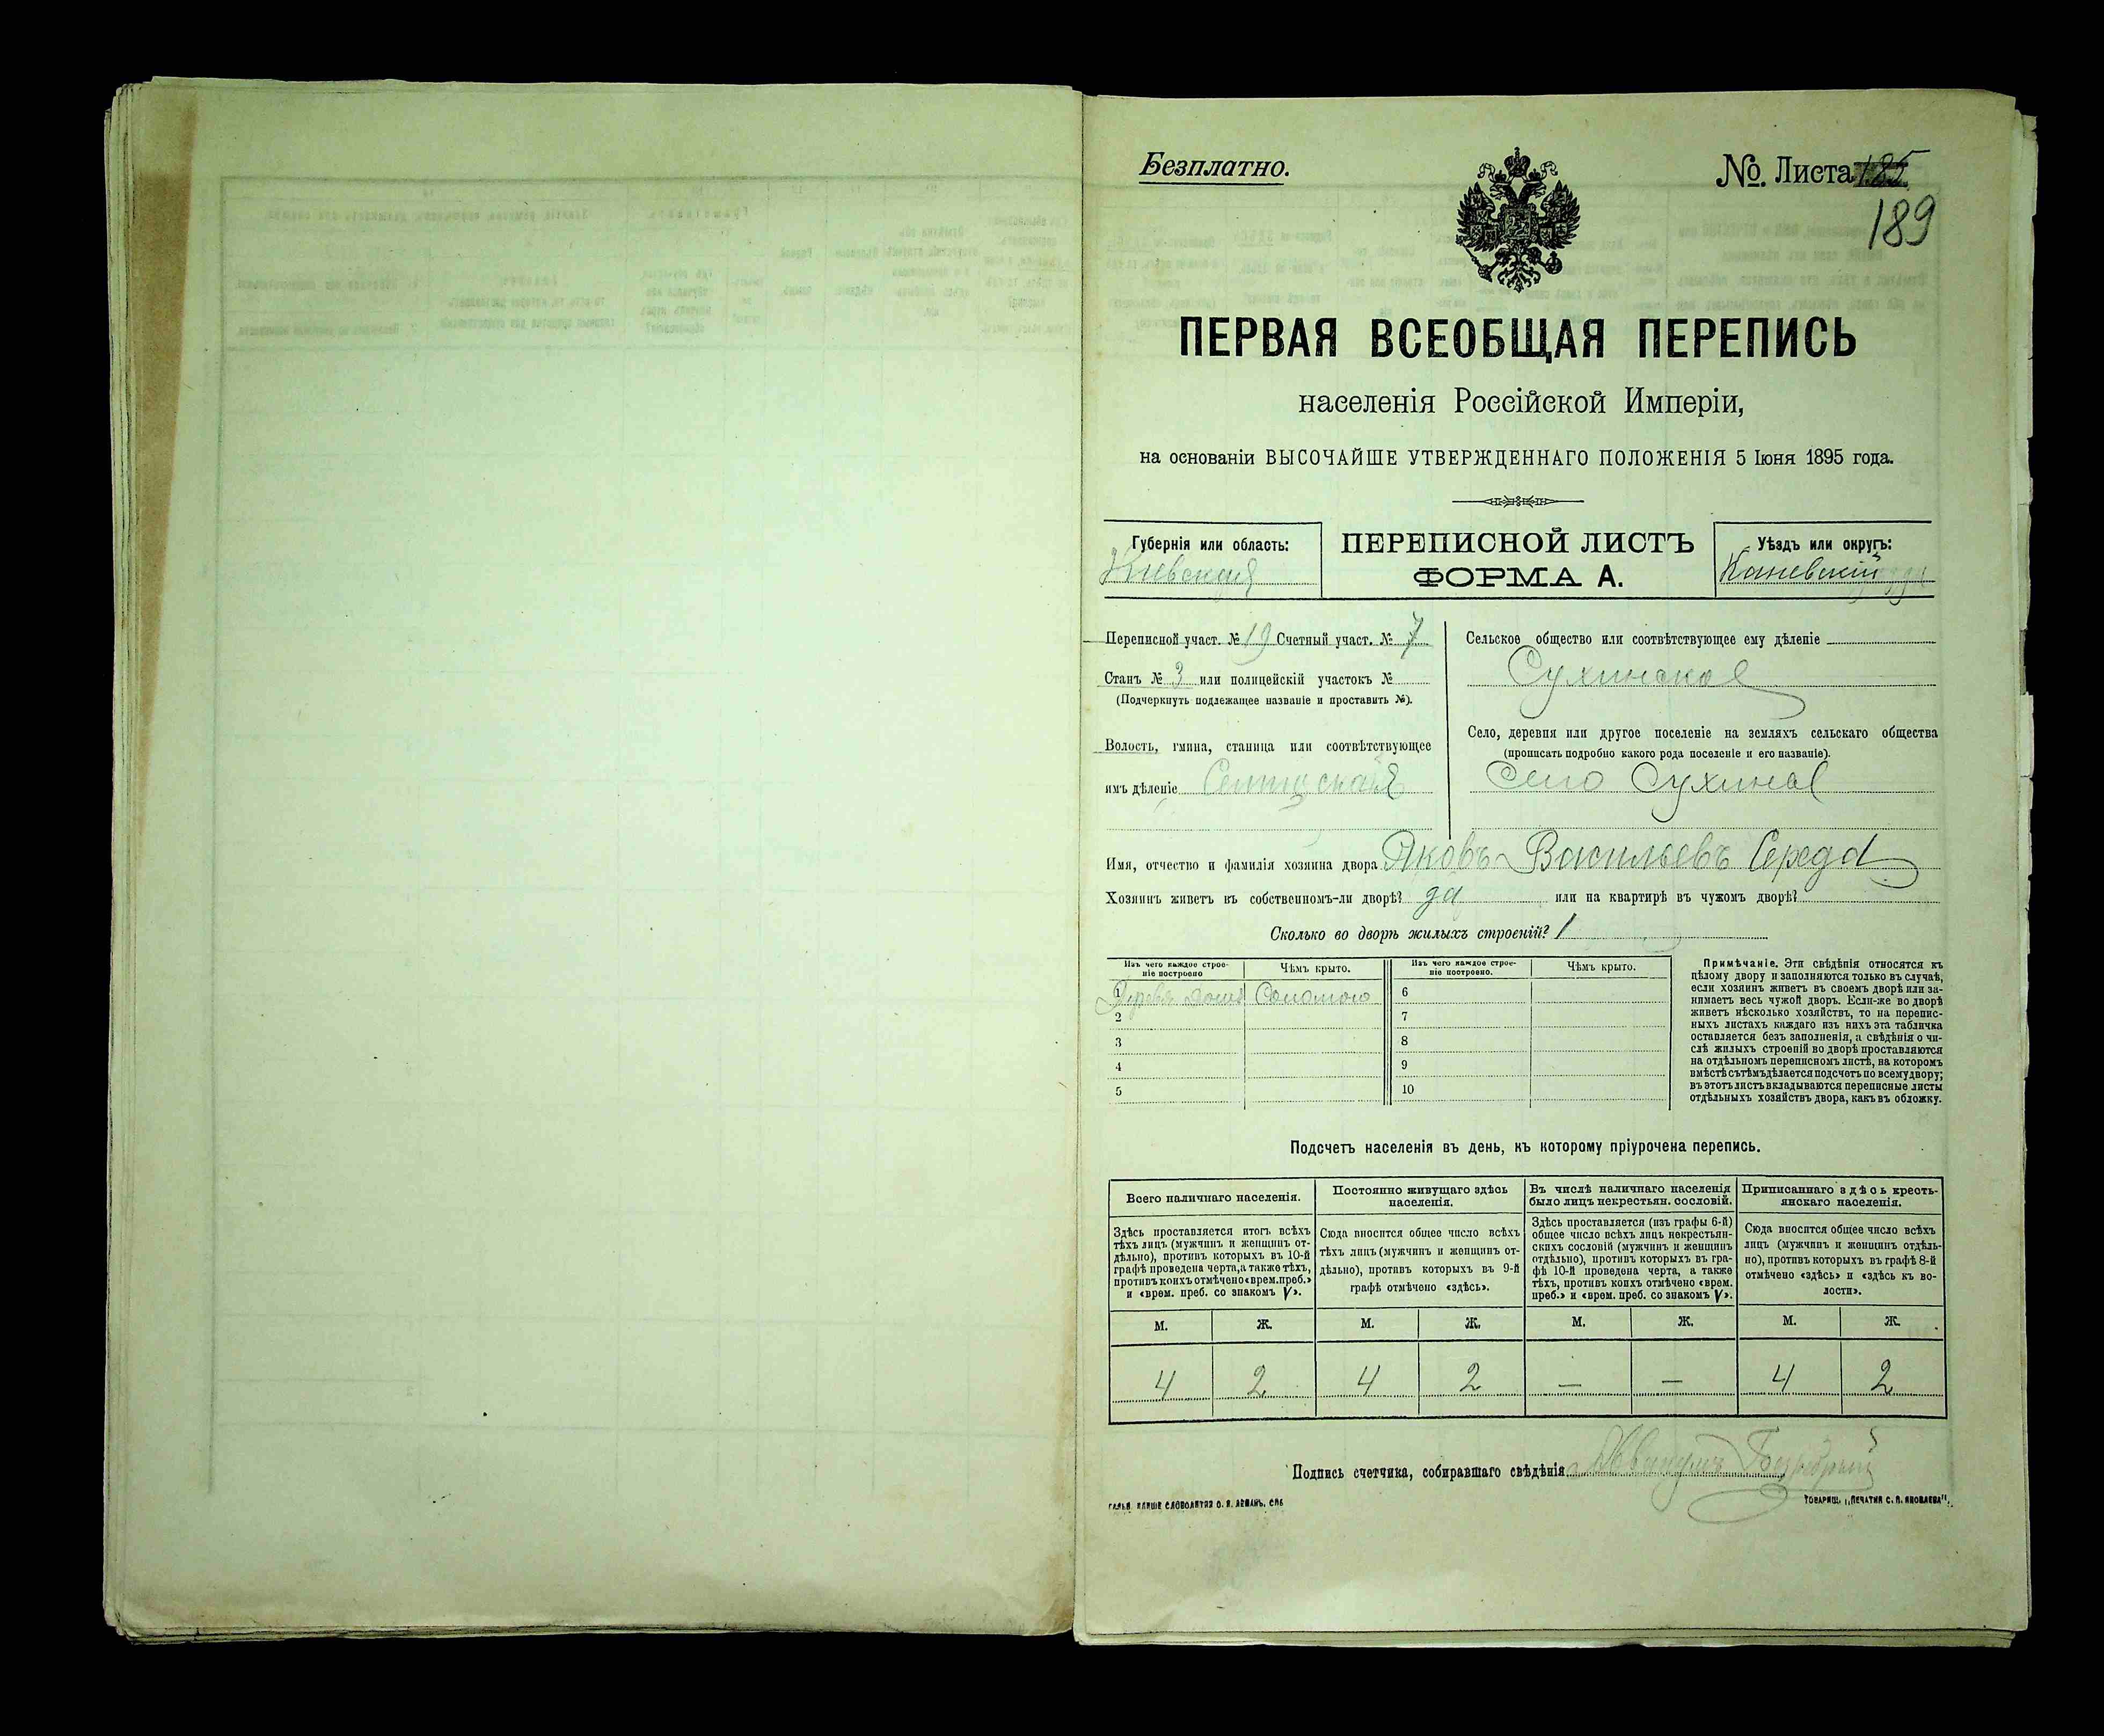 Безплатно.
№. Листа 185
189
ПЕРВАЯ ВСЕОБЩАЯ ПЕРЕПИСЬ
населенія Россійской Имперіи,
на основаніи ВЫСОЧАЙШЕ УТВЕРЖДЕННАГО ПОЛОЖЕНІЯ 5 Іюня 1895 года.
Губернія или область:
Кіевская
ПЕРЕПИСНОЙ ЛИСТЪ
ФОРМА А.
Уѣздъ или округъ:
Каневскій
Переписной участ. № 19 Счетный участ. № 7
Станъ № 3 или полицейскій участокъ №
(Подчеркнуть подлежащее названіе и проставить №).
Волость, гмина, станица или соотвѣтствующее
имъ дѣленіе
Сельское общество или соотвѣтствующее ему дѣленіе
Сухинское
Село, деревня или другое поселеніе на земляхъ сельскаго общества
(прописать подробно какого рода поселеніе и его названіе).
Село Сухины
Имя, отчество и фамилія хозяина двора Яковъ Васильевъ Середа
Хозяинъ живетъ въ собственномъ-ли дворѣ? да или на квартирѣ въ чужомъ дворѣ?
Сколько во дворѣ жилыхъ строеній? 1
Изъ чего каждое строе-
ніе построено
Чѣмъ крыто.
Изъ чего каждое строе-
ніе построено.
Чѣмъ крыто.
1 Соломою
2
3
4
5
6
7
8
9
10
Примѣчаніе. Эти свѣдѣнія относятся къ
цѣлому двору и заполняются только въ случаѣ,
если хозяинъ живетъ въ своемъ дворѣ или за-
нимаетъ весь чужой дворъ. Если-же во дворѣ
живетъ нѣсколько хозяйствъ, то на перепис-
ныхъ листахъ каждаго изъ нихъ эта табличка
оставляется безъ заполненія, а свѣдѣнія о чи-
слѣ жилыхъ строеній во дворѣ проставляются
на отдѣльномъ переписномъ листѣ, на которомъ
вмѣстѣ съ тѣмъ дѣлается подсчетъ по всему двору;
въ этотъ листъ вкладываются переписные листы
отдѣльныхъ хозяйствъ двора, какъ въ обложку.
Подсчетъ населенія въ день, къ которому пріурочена перепись.
Всего наличнаго населенія.
Постоянно живущаго здѣсь
населенія.
Въ числѣ наличнаго населенія
было лицъ некрестьян. сословій.
Приписаннаго здѣсь кресть-
янскаго населенія.
Здѣсь проставляется итогъ всѣхъ
тѣхъ лицъ (мужчинъ и женщинъ от-
дѣльно), противъ которыхъ въ 10-й
графѣ проведена черта, а также тѣхъ,
противъ коихъ отмѣчено «врем. преб.»
и «врем. преб. со знакомъ V».
Сюда вносится общее число всѣхъ
тѣхъ лицъ (мужчинъ и женщинъ от-
дѣльно), противъ которыхъ въ 9-й
графѣ отмѣчено «здѣсь».
Здѣсь проставляется (изъ графы 6-й)
общее число всѣхъ лицъ некрестьян-
скихъ сословій (мужчинъ и женщинъ
отдѣльно), противъ которыхъ въ гра-
фѣ 10-й проведена черта, а также
тѣхъ, противъ коихъ отмѣчено «врем.
преб.» и «врем. преб. со знакомъ V».
Сюда вносится общее число всѣхъ
лицъ (мужчинъ и женщинъ отдѣль-
но), противъ которыхъ въ графѣ 8-й
отмѣчено «здѣсь» и «здѣсь къ во-
лости».
М. Ж. М. Ж. М. Ж. М. Ж.
4 2 4 2 — — 4 2
Подпись счетчика, собиравшаго свѣдѣнія
ГАЛЬВ. КЛИШЕ СЛОВОЛИТНИ О. И. ЛЕМАНЪ, СПБ
ТОВАРИЩ. „ПЕЧАТНЯ С. П. ЯКОВЛЕВА".